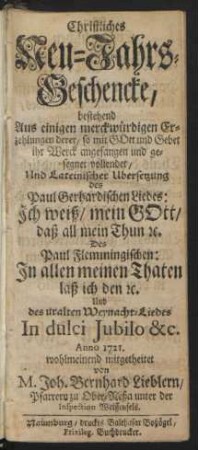 Christliches
Neu-Jahrs-
Geschencke,
bestehend
Aus einigen merckwürdigen Er-
zehlungen derer, so mit GOtt und Gebet
ihr Werck angefangen und ge-
segnet vollendet,
Und Lateinischer Ubersetzung
des
Paul Gerhardischen Liedes:
Ich weiß, mein GOtt,
daß all mein Thun ꝛc.
Des
Paul Flemmingischen:
In allen meinen Thaten
laß ich den ꝛc.
Und
des uralten Weynacht-Liedes
In dulci Jubilo &c.
Anno 1721.
wohlmeinend mitgetheilet
von
M. Joh. Bernhard Lieblern,
Pfarrern zu Ober-Neßa unter der
Inspection Weißenfels.
Naumburg, druckts Balthasar Boßögel,
Privileg. Buchdrucker.